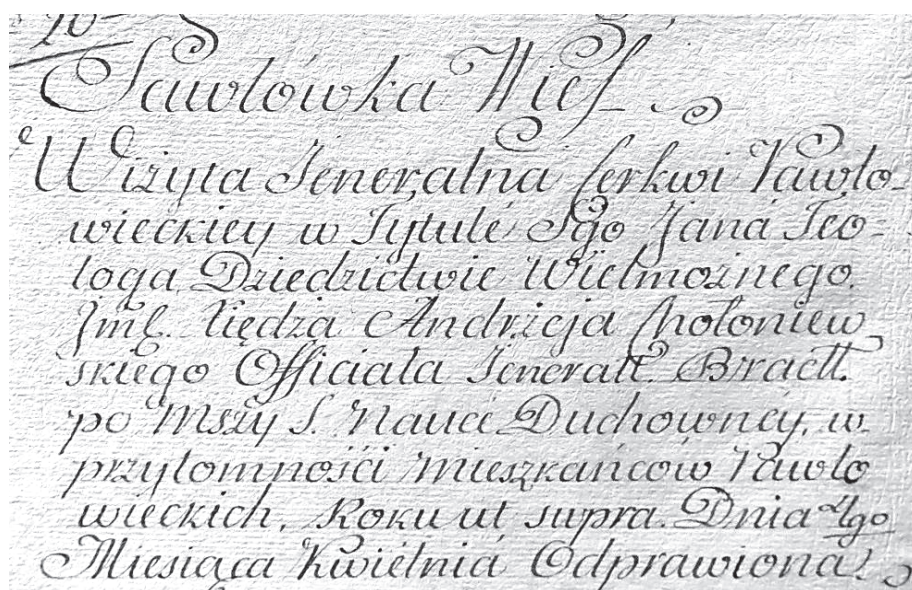 Pawłówka Wieś
Wizyta Jeneralna Cerkwi Pawło-
wieckiey w Tytule Sgo Jana Teo-
loga Dziedzictwie Wielmożnego
Jmć. Xiędza Andrzeja Chołoniew
skiego Officiała Jeneralł. Bracll.
po Mszy S. Nauce Duchowney, w
przytomności Mieszkańców Pawło
wieckich. Roku ut supra. Dnia
Miesiąca Kwietnia Odprawiona.